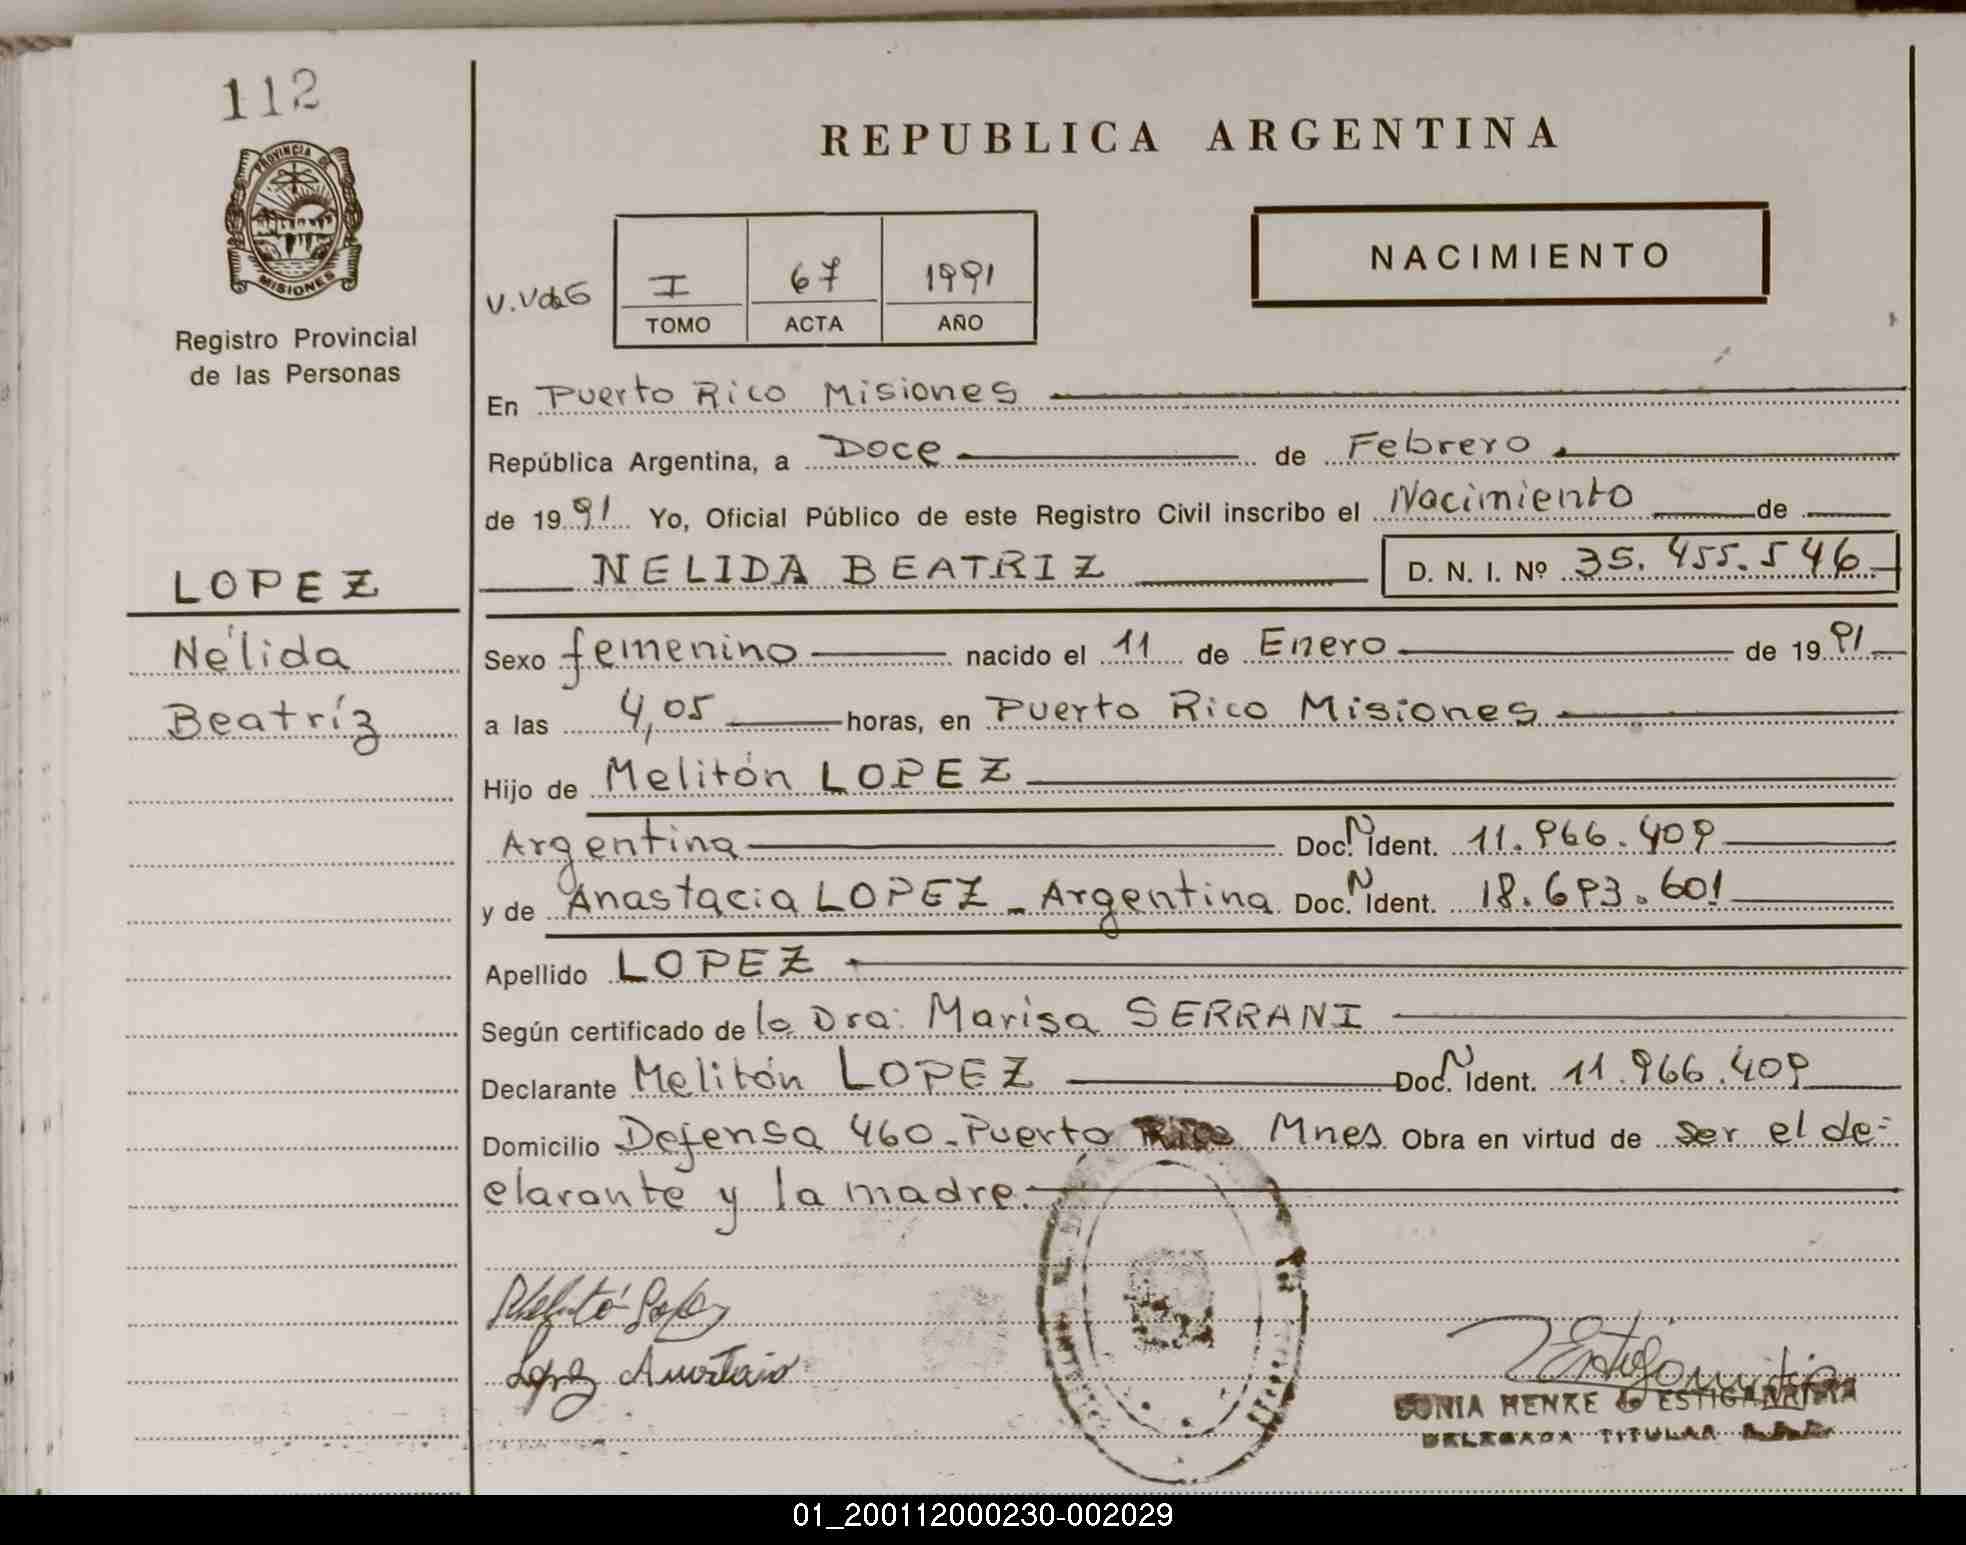 112
PROVINCIA DE
MISIONES
Registro Provincial
de las Personas
LOPEZ
Nélida
Beatríz
REPUBLICA ARGENTINA
NACIMIENTO
V.VdeG
I 67 1991
TOMO ACTA AÑO
En Puerto Rico Misiones
República Argentina, a Doce de Febrero
de 1991 Yo, Oficial Público de este Registro Civil inscribo el Nacimiento de
NELIDA BEATRIZ D. N. I. Nº 35.455.546
Sexo femenino nacido el 11 de Enero de 1991
a las 4,05 horas, en Puerto Rico Misiones
Hijo de Melitón LOPEZ
Argentina Doc. N Ident. 11.966.409
y de Anastacia LOPEZ - Argentina Doc. N Ident. 18.693.601
Apellido LOPEZ
Según certificado de la Dra: Marisa SERRANI
Declarante Melitón LOPEZ Doc. N Ident. 11.966.409
Domicilio Defensa 460-Puerto Rico Mnes Obra en virtud de ser el de-
clarante y la madre.
Melitó Lopez
Lopez
SONIA HENKE de ESTIGARRIBIA
DELEGADA TITULAR
01_200112000230-002029